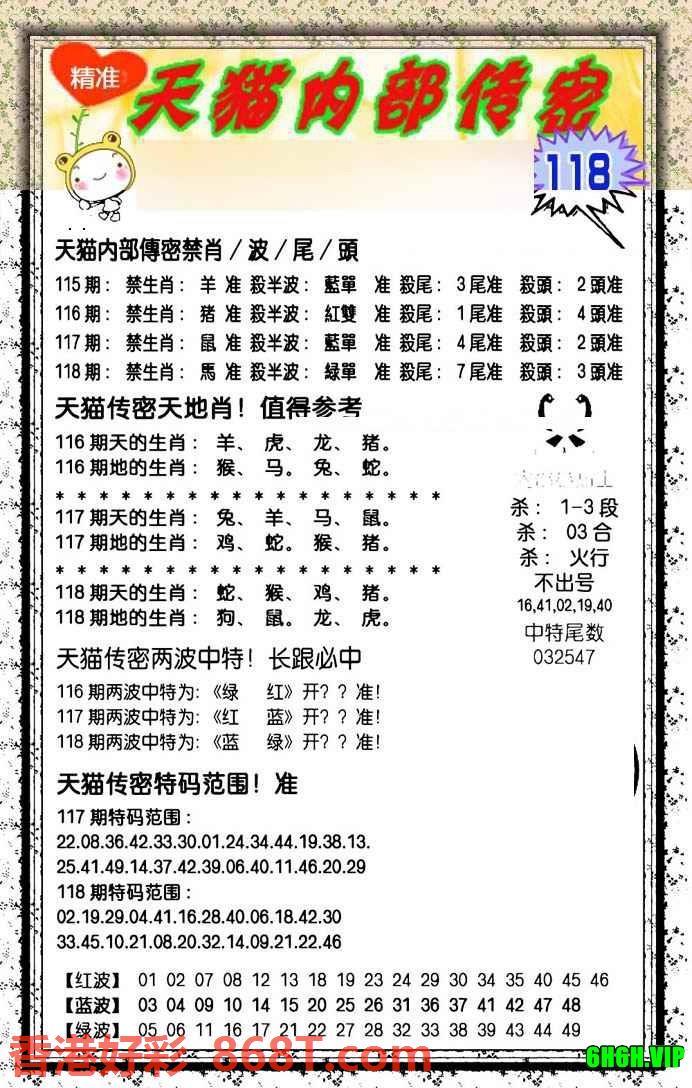 精准
天猫内部传密
118
天猫内部傳密禁肖/波/尾/頭
115期：禁生肖：羊 准 殺半波：藍單 准 殺尾：3尾准 殺頭：2頭准
116期：禁生肖：猪 准 殺半波：紅雙 准 殺尾：1尾准 殺頭：4頭准
117期：禁生肖：鼠 准 殺半波：藍單 准 殺尾：4尾准 殺頭：2頭准
118期：禁生肖：馬 准 殺半波：緑單 准 殺尾：7尾准 殺頭：3頭准
天猫传密天地肖！值得参考
116期天的生肖：羊、虎、龙、猪。
116期地的生肖：猴、马。兔、蛇。
* * * * * * * * * * * * * * * * * *
117期天的生肖：兔、羊、马、鼠。
117期地的生肖：鸡、蛇。猴、猪。
* * * * * * * * * * * * * * * * * *
118期天的生肖：蛇、猴、鸡、猪。
118期地的生肖：狗、鼠。龙、虎。
杀：1-3段
杀：03合
杀：火行
不出号
16,41,02,19,40
中特尾数
032547
天猫传密两波中特！长跟必中
116期两波中特为:《绿 红》开？？准！
117期两波中特为:《红 蓝》开？？准！
118期两波中特为:《蓝 绿》开？？准！
天猫传密特码范围！准
117期特码范围：
22.08.36.42.33.30.01.24.34.44.19.38.13.
25.41.49.14.37.42.39.06.40.11.46.20.29
118期特码范围：
02.19.29.04.41.16.28.40.06.18.42.30
33.45.10.21.08.20.32.14.09.21.22.46
【红波】 01 02 07 08 12 13 18 19 23 24 29 30 34 35 40 45 46
【蓝波】 03 04 09 10 14 15 20 25 26 31 36 37 41 42 47 48
【绿波】 05 06 11 16 17 21 22 27 28 32 33 38 39 43 44 49
香港好彩 868T.com
6H6H.VIP